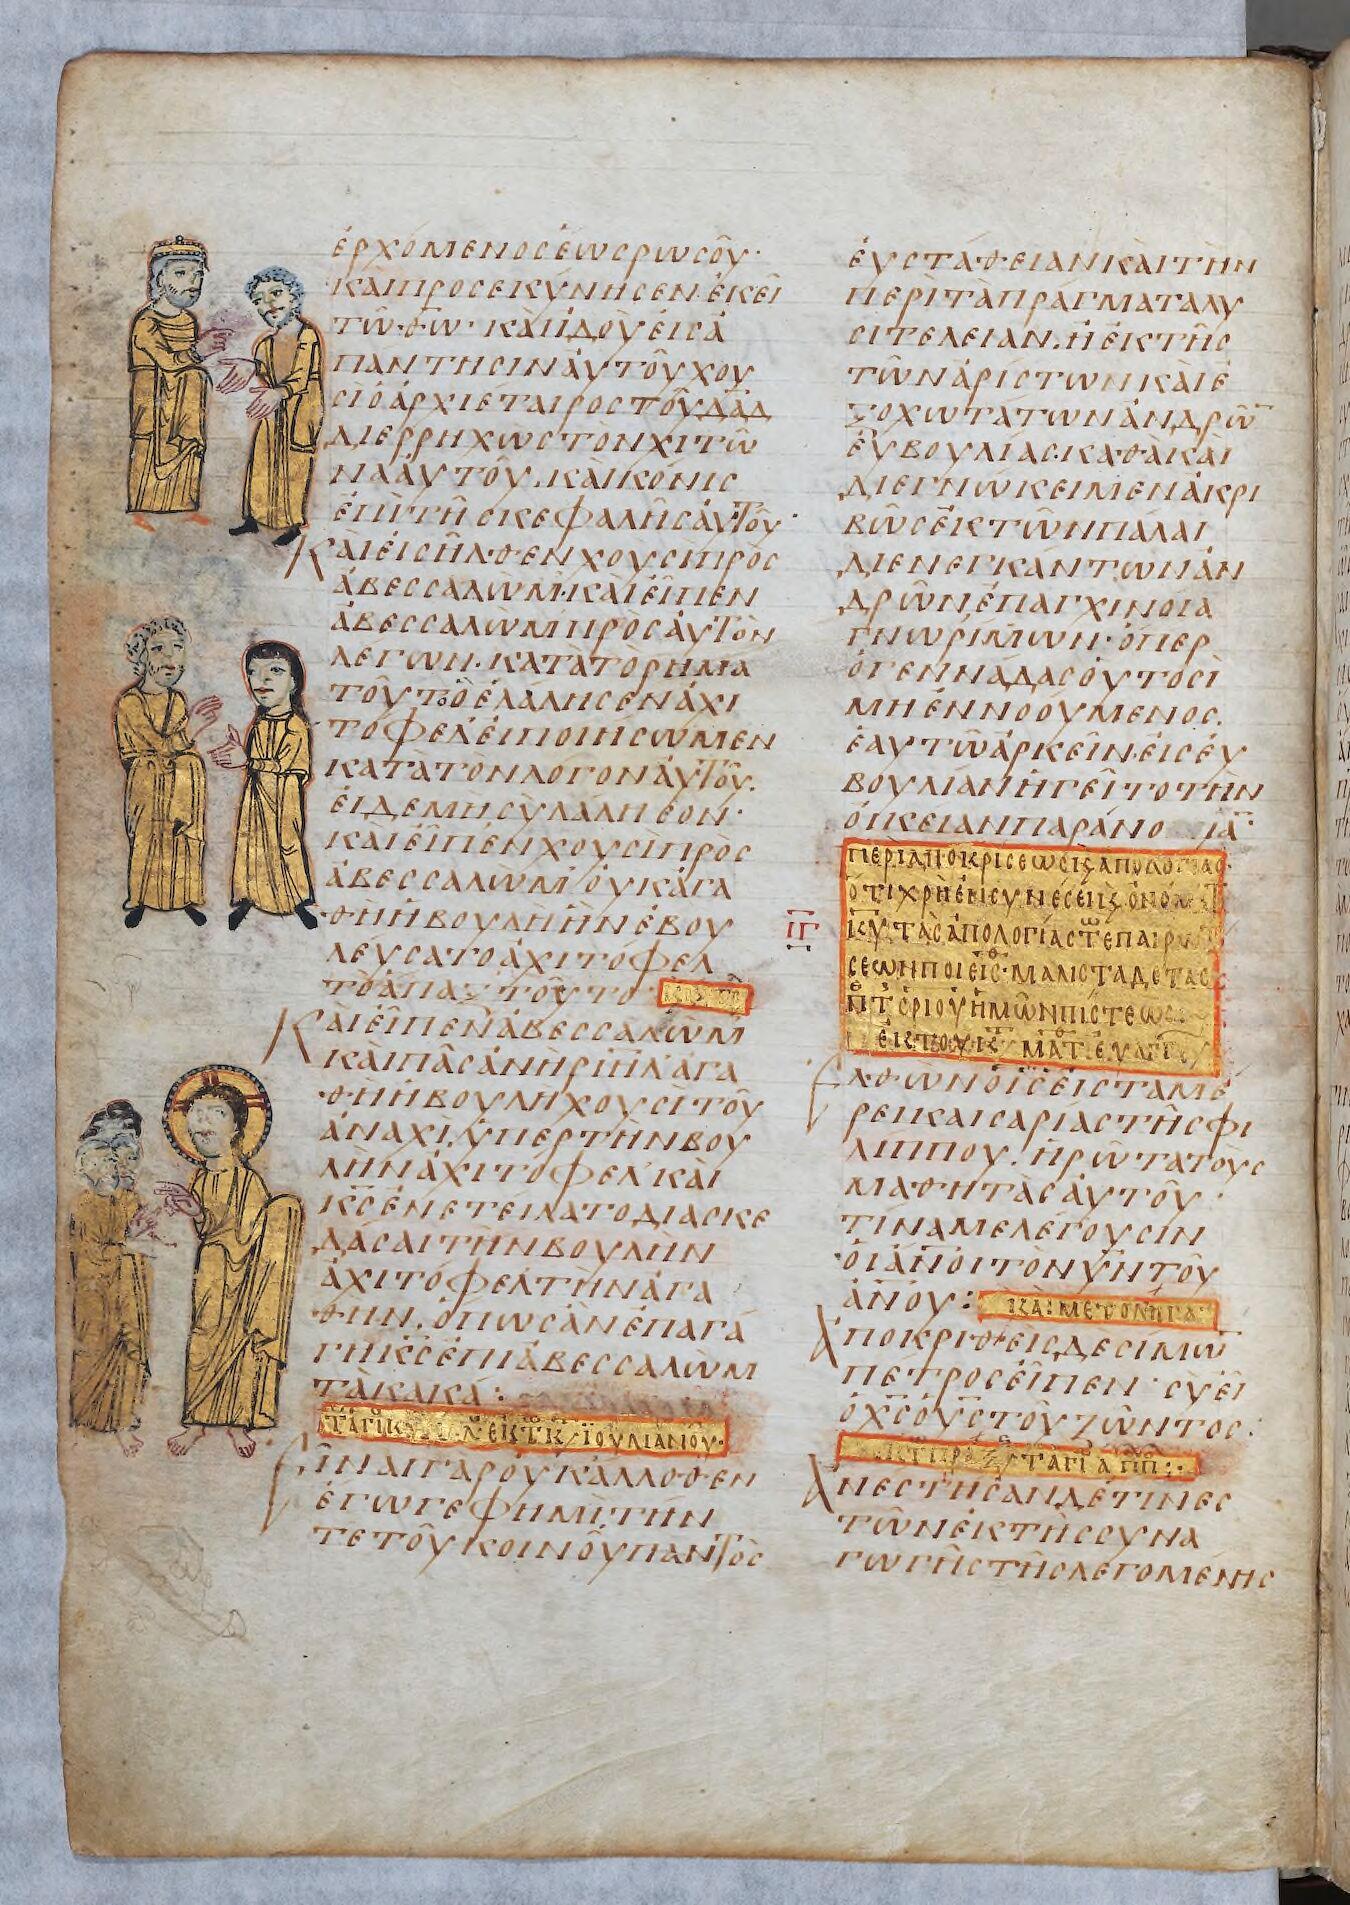 ἐρχόμενος ἕως ρως οὗ·
καὶ προσεκύνησεν ἐκεῖ
τῶ θω· καὶ ἰδοὺ εἰς ἀ
παντησιν ἀυτοῦ χου
σὶ ὁ ἀρχιεταιρος τοῦ δᾱδ
διερρηχὼς τὸν χιτῶ
να ἀυτοῦ. καὶ κόνις
ἐπὶ τῆς κεφαλῆς ἀυτοῦ·
Καὶ εἰσῆλθεν χουσὶ πρὸς
ἀβεσσαλωμ· καὶ εἶπεν
ἀβεσσαλὼμ πρὸς ἀυτὸν
λεγων. κατὰ τὸ ρημα
τοῦτο ὃ ἐλάλησεν ἀχι
τόφελ· εἰ ποιήσωμεν
κατὰ τὸν λόγον ἀυτοῦ.
εἰ δὲ μὴ σὺ λάλησον·
καὶ εἶπεν χουσὶ πρὸς
ἀβεσσαλωμ· οὐκ ἀγα
θὴ ἡ βουλὴ ἣν ἐβου
λεύσατο ἀχιτόφελ
τὸ ἅπαξ τοῦτο·
Καὶ εἶπεν ἀβεσσαλωμ
καὶ πᾶς ἀνὴρ ιηλ ἀγα
θὴ ἡ βουλὴ χουσὶ τοῦ
ἀναχι. ὑπερ τὴν βου
λὴν ἀχιτόφελ· καὶ
κς ἐνετείλατο διασκε
δάσαι τὴν βουλὴν
ἀχιτόφελ τὴν ἀγα
θην. ὅπως ἂν ἐπαγά
γη κς ἐπὶ ἀβεσσαλὼμ
τὰ κακά:
Εἶναι γὰρ οὐκ ἄλλοθεν
ἔγωγε φημὶ τήν
τε τοῦ κοινοῦ παντὸς
ἐυστάθειαν καὶ τὴν
περὶ τὰ πράγματα λυ
σιτέλειαν. ἢ ἐκ τῆς
τῶν ἀρίστων καὶ ἐ
ξοχωτάτων ἀνδρῶν
ἐυβουλίας. καθὰ καὶ
διεγνώκειμεν ἀκρι
βῶς ἐκ τῶν πάλαι
διενεγκάντων ἀν
δρῶν ἐπ ἀγχινοία
γνωρίμων· ὅπερ
ὁ γεννάδας οὑτοσὶ
μὴ ἐννοούμενος.
ἑαυτῶ ἀρκεῖν εἰς ἐυ
βουλίαν ἡγεῖτο τὴν
οἰκείαν παράνοιαν·
περὶ ἀποκρίσεως ἀπολογίας·
ΙΓ
Ελθὼν ὁ ις εἰς τα μέ
ρει καισαρίας τῆς φι
λίππου. ἠρώτα τοὺς
μαθητὰς ἀυτοῦ·
τίνα με λέγουσιν
οἱ ανοι τὸν υν τοῦ
ανου: καὶ μετ ολίγα
Αποκριθεὶς δε σίμων
πετρος εἶπεν· σὺ εἶ
ὁ χς ὁ υς τοῦ ζῶντος:
Ανέστησαν δέ τινες
τῶν ἐκ τῆς συνα
γωγῆς τῆς λεγομένης